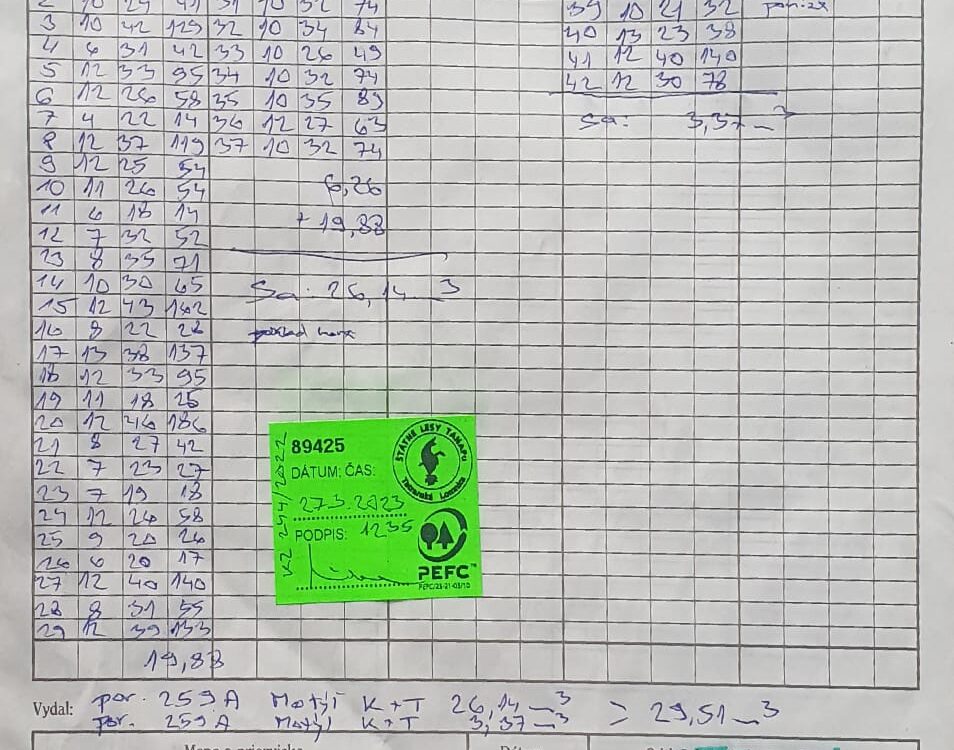 39 10 21 32
3 10 42 129 32 10 34 84 40 13 23 38
4 6 31 42 33 10 26 49 41 12 40 140
5 12 33 95 34 10 32 74 42 12 30 78
6 12 26 58 35 10 35 89
7 4 22 14 36 12 27 63 Sa: 3,37 m3
8 12 37 119 37 10 32 74
9 12 25 54
10 11 26 54 6,26
11 6 18 14 + 19,88
12 7 32 52
13 8 35 71
14 10 30 65 Sa: 26,14 m3
15 12 43 162
16 8 22 28
17 13 38 137
18 12 33 95
19 11 18 25
20 12 46 186
21 8 27 42
22 7 23 27
23 7 19 18
24 12 26 58
25 9 20 26
26 6 20 17
27 12 40 140
28 8 31 55
29 12 39 133
19,88
89425
DÁTUM: ČAS:
27.3.2023
PODPIS: 1235
ŠTÁTNE LESY TANAPU
Tatranská Lomnica
PEFC™
Vydal: por. 259A Motýľ K+T 26,14 m3 > 29,51 m3
por. 259A Motýľ K+T 3,37 m3